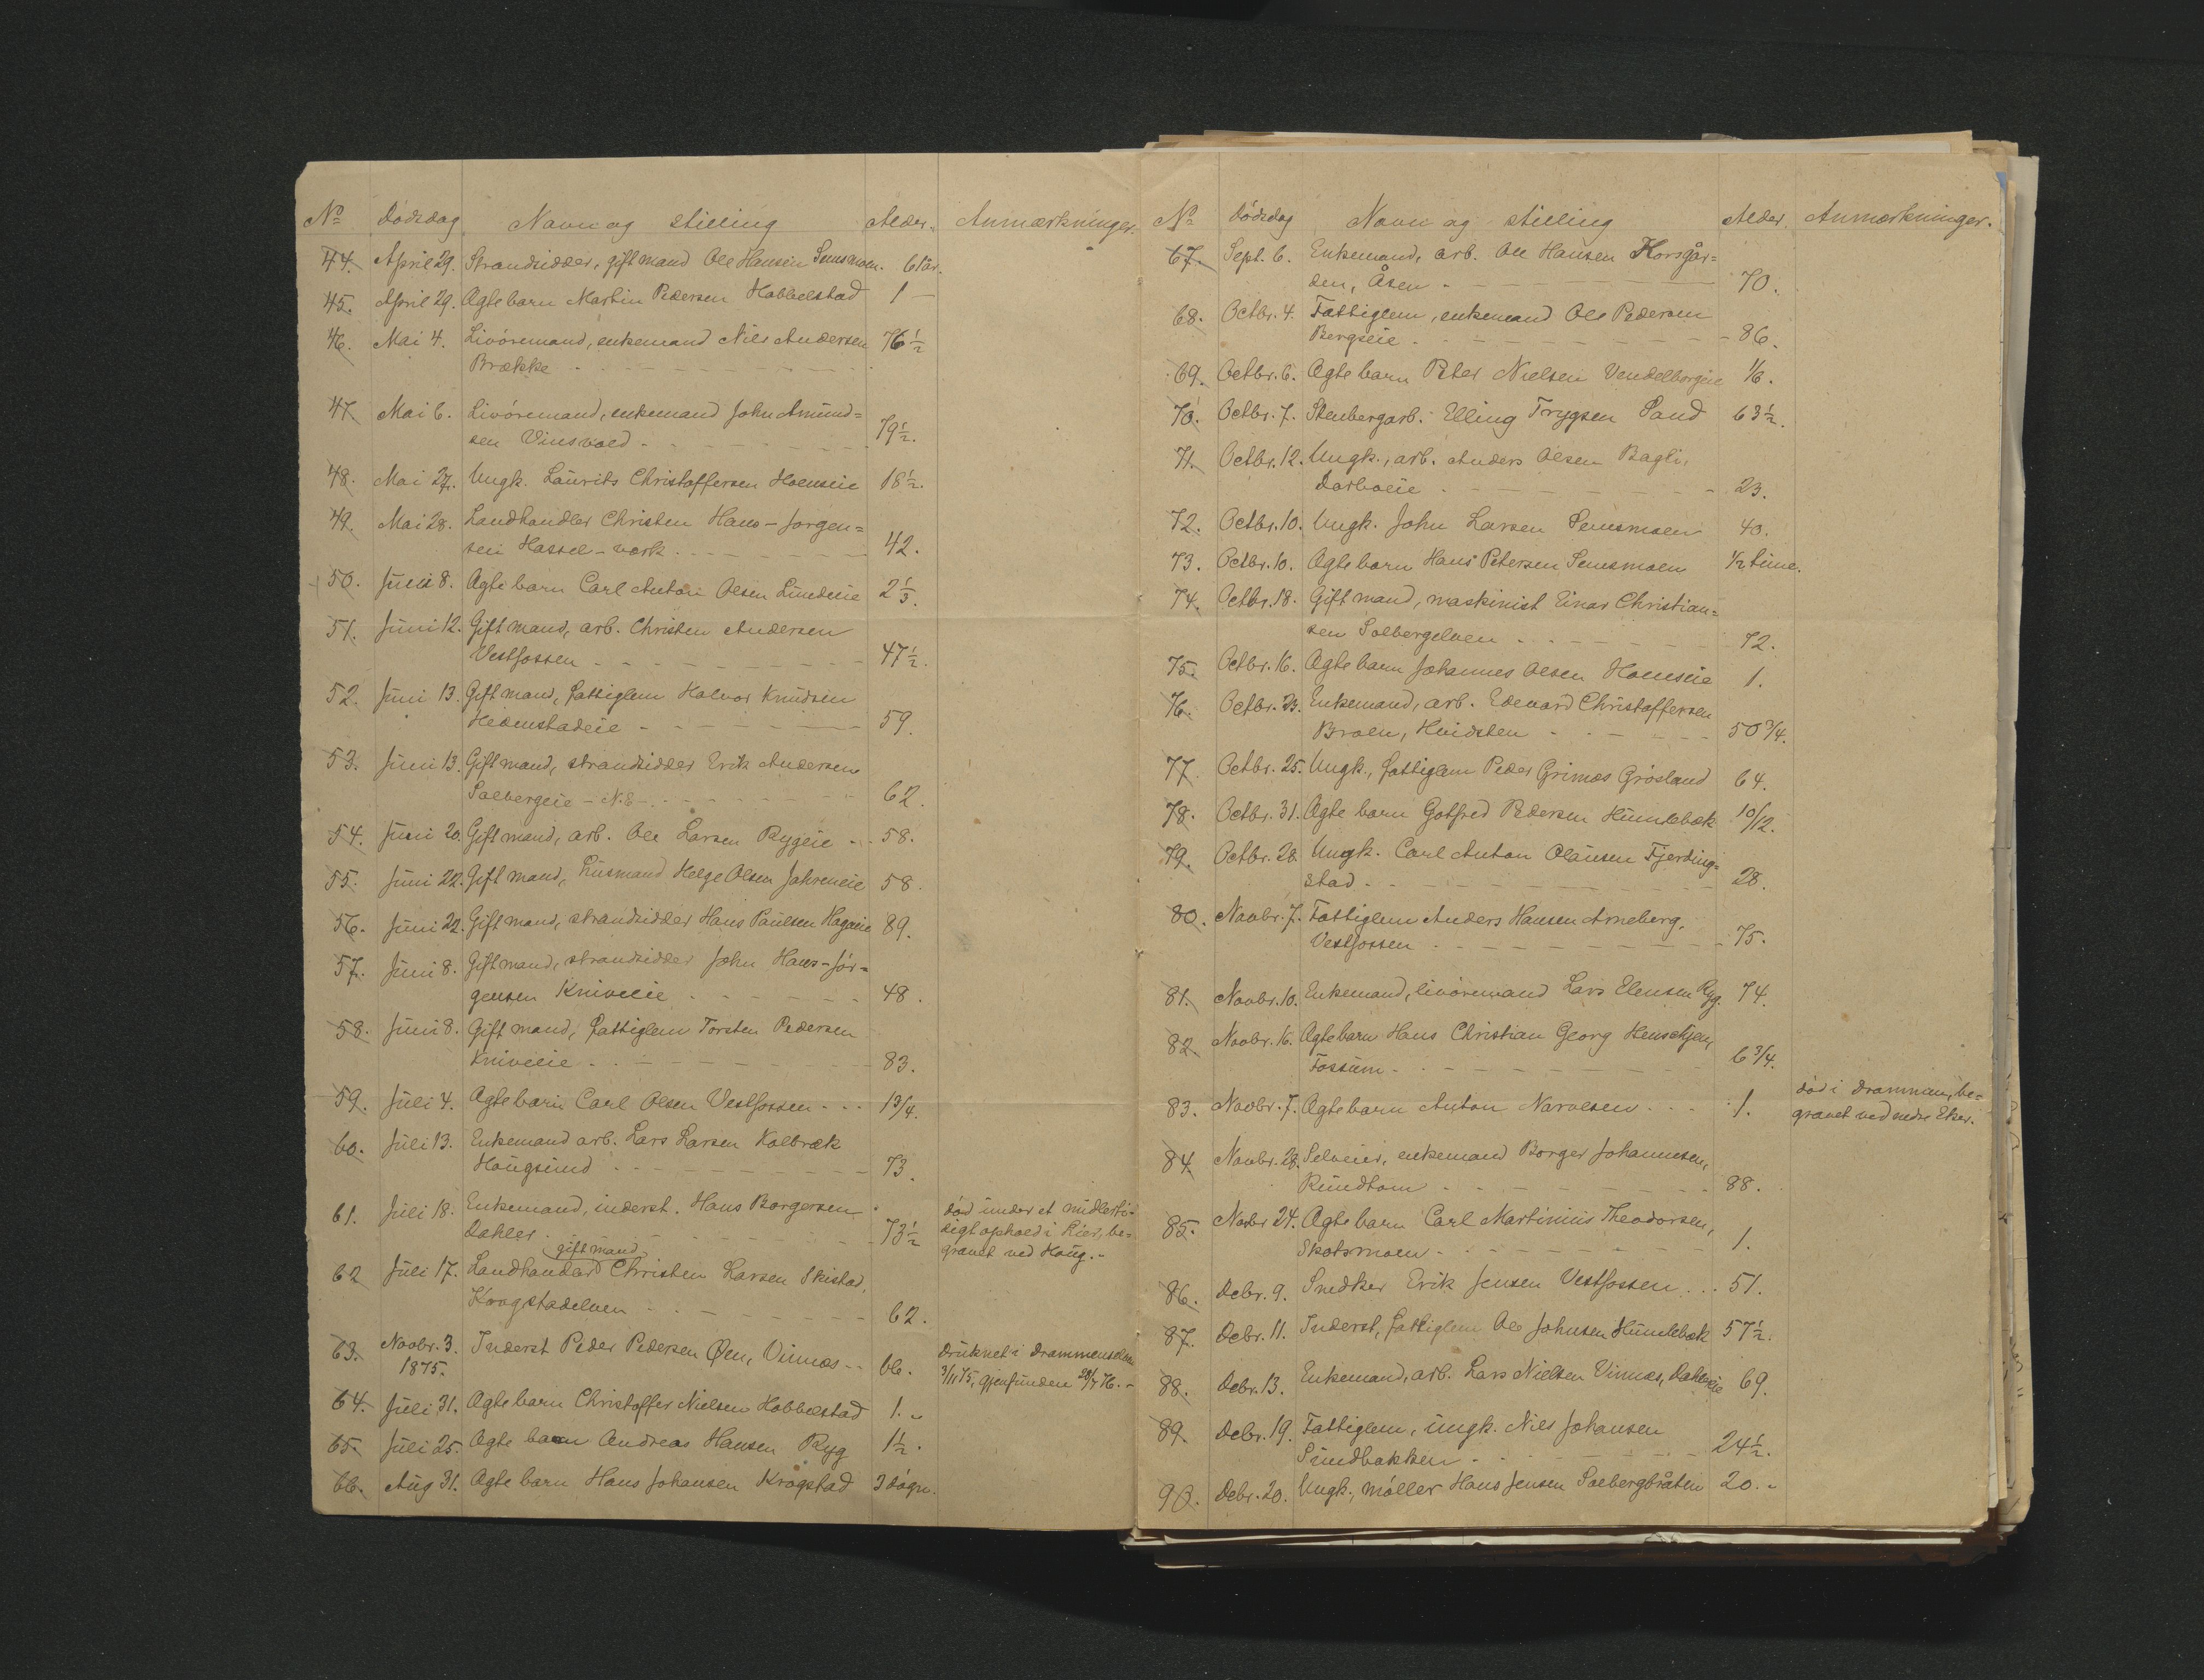 No Dödsdag Navn og stilling Alder. Anmærkninger.
44. April 29. Strandsidder, gift mand Ole Hansen Semsmoen. 61 år.
45. April 29. Ægte barn Martin Pedersen Hobbelstad 1 —
46. Mai 4. Livöremand, enkemand Niels Andersen 76 1/2
Brække
47. Mai 6. Livöremand, enkemand John Amund=
sen Vinsvold - 79 1/2.
48. Mai 27. Ungk. Laurits Christoffersen Hoenseie 18 1/2.
49. Mai 28. Landhandler Christen Hans-Jorgen=
sen Hassel-værk. 42.
50. Juni 8. Ægte barn Carl Anton Olsen Lundeie 2 1/3.
51. Juni 12. Gift mand, arb. Christen Andersen
Vestfossen 47 1/2.
52. Juni 13. Gift mand, fattiglem Halvor Knudsen
Hedenstadeie 59.
53. Juni 13. Gift mand, strandsidder Erik Andersen
Solbergeie - N.E-. 62.
54. Juni 20. Gift mand, arb. Ole Larsen Rygeie - 58.
55. Juni 22. Gift mand, husmand Helge Olsen Jahreneie 58.
56. Juni 22. Gift mand, strandsidder Hans Paulsen Hagaeie 89.
57. Juni 8. Gift mand, strandsidder John Hans-Jör=
gensen Kniveeie 48.
58. Juni 8. Gift mand, fattiglem Torsten Pedersen
Kniveeie 83.
59. Juli 4. Ægte barn Carl Olsen Vestfossen - - - 1 3/4.
60. Juli 13. Enkemand arb. Lars Larsen Kolbræk
Hougsund 73.
61. Juli 18. Enkemand, inderst. Hans Borgersen död under et midlerti-
Dahler 73 1/2 digt ophold i Lier, be=
gravet ved Houg.-
gift mand
62 Juli 17. Landhandler Christen Larsen Skistad,
Krogstadelven 62.
63. Novbr. 3. Inderst Peder Pedersen Øen, Vinnes -- 66. druknet i Drammenselven
1875. 3/11 75, gjenfunden 28/7 76.-
64. Juli 31. Ægte barn Christoffer Nielsen Hobbelstad 1.-
65. Juli 25. Ægte barn Andreas Hansen Ryg 1 1/2.
66. Aug 31. Ægte barn Hans Johansen Krogstad 3 dögn.
No Dödsdag Navn og stilling Alder. Anmærkninger.
67. Sept. 6. Enkemand, arb. Ole Hansen Korsgår=
den, Åsen - 70.
68. Octbr. 4. Fattiglem, enkemand Ole Pedersen
Bergseie - 86.
69. Octbr. 6. Ægte barn Peter Nielsen Vendelborgeie 1/6.
70. Octbr. 7. Stenbergarb. Elling Trygsen Sand 63 1/2.
71. Octbr. 12. Ungk., arb. Anders Olsen Bagli,
Darboeie 23.
72. Octbr. 10. Ungk. John Larsen Semsmoen 40.
73. Octbr. 10. Ægte barn Hans Petersen Semsmoen 1/2 time.
74. Octbr. 18. Gift mand, maskinist Einar Christian=
sen Solbergelven 72.
75. Octbr. 16. Ægte barn Johannes Olsen Hoenseie 1.
76. Octbr. 23. Enkemand, arb. Edevard Christoffersen
Broen, Hvidsten 50 3/4.
77. Octbr. 25. Ungk., fattiglem Peder Grimas Grösland 64.
78. Octbr. 31. Ægte barn Gotfred Pedersen Hunlebæk 10/12.
79. Octbr. 28. Ungk. Carl Anton Olausen Fjerding=
stad 28.
80. Novbr. 7. Fattiglem Anders Hansen Arneberg.
Vestfossen 75.
81. Novbr. 10. Enkemand, livöremand Lars Elensen Ryg. 74.
82 Novbr. 16. Ægte barn Hans Christian Georg Henschjen
Fossum 6 3/4.
83. Novbr. 7. Ægte barn Anton Narvesen 1. död i Drammen, be=
gravet ved nedre Eker.
84. Novbr. 29. Selveier, enkemand Borger Johannesen,
Rundtom 88.
85. Novbr 24. Ægte barn Carl Martinius Theodorsen,
Skotsmoen 1.
86. Debr. 9. Snedker Erik Jensen Vestfossen ... 51.
87. Debr. 11. Inderst, fattiglem Ole Johnsen Hunlebæk 57 1/2.
88. Debr. 13. Enkemand, arb. Lars Nielsen Vinnes, Dahlereie 69.
89. Debr. 19. Fattiglem, ungk. Nils Johansen
Sundbakken 24 1/2.
90. Debr. 20. Ungk., möller Hans Jensen Solbergbråten 20.-